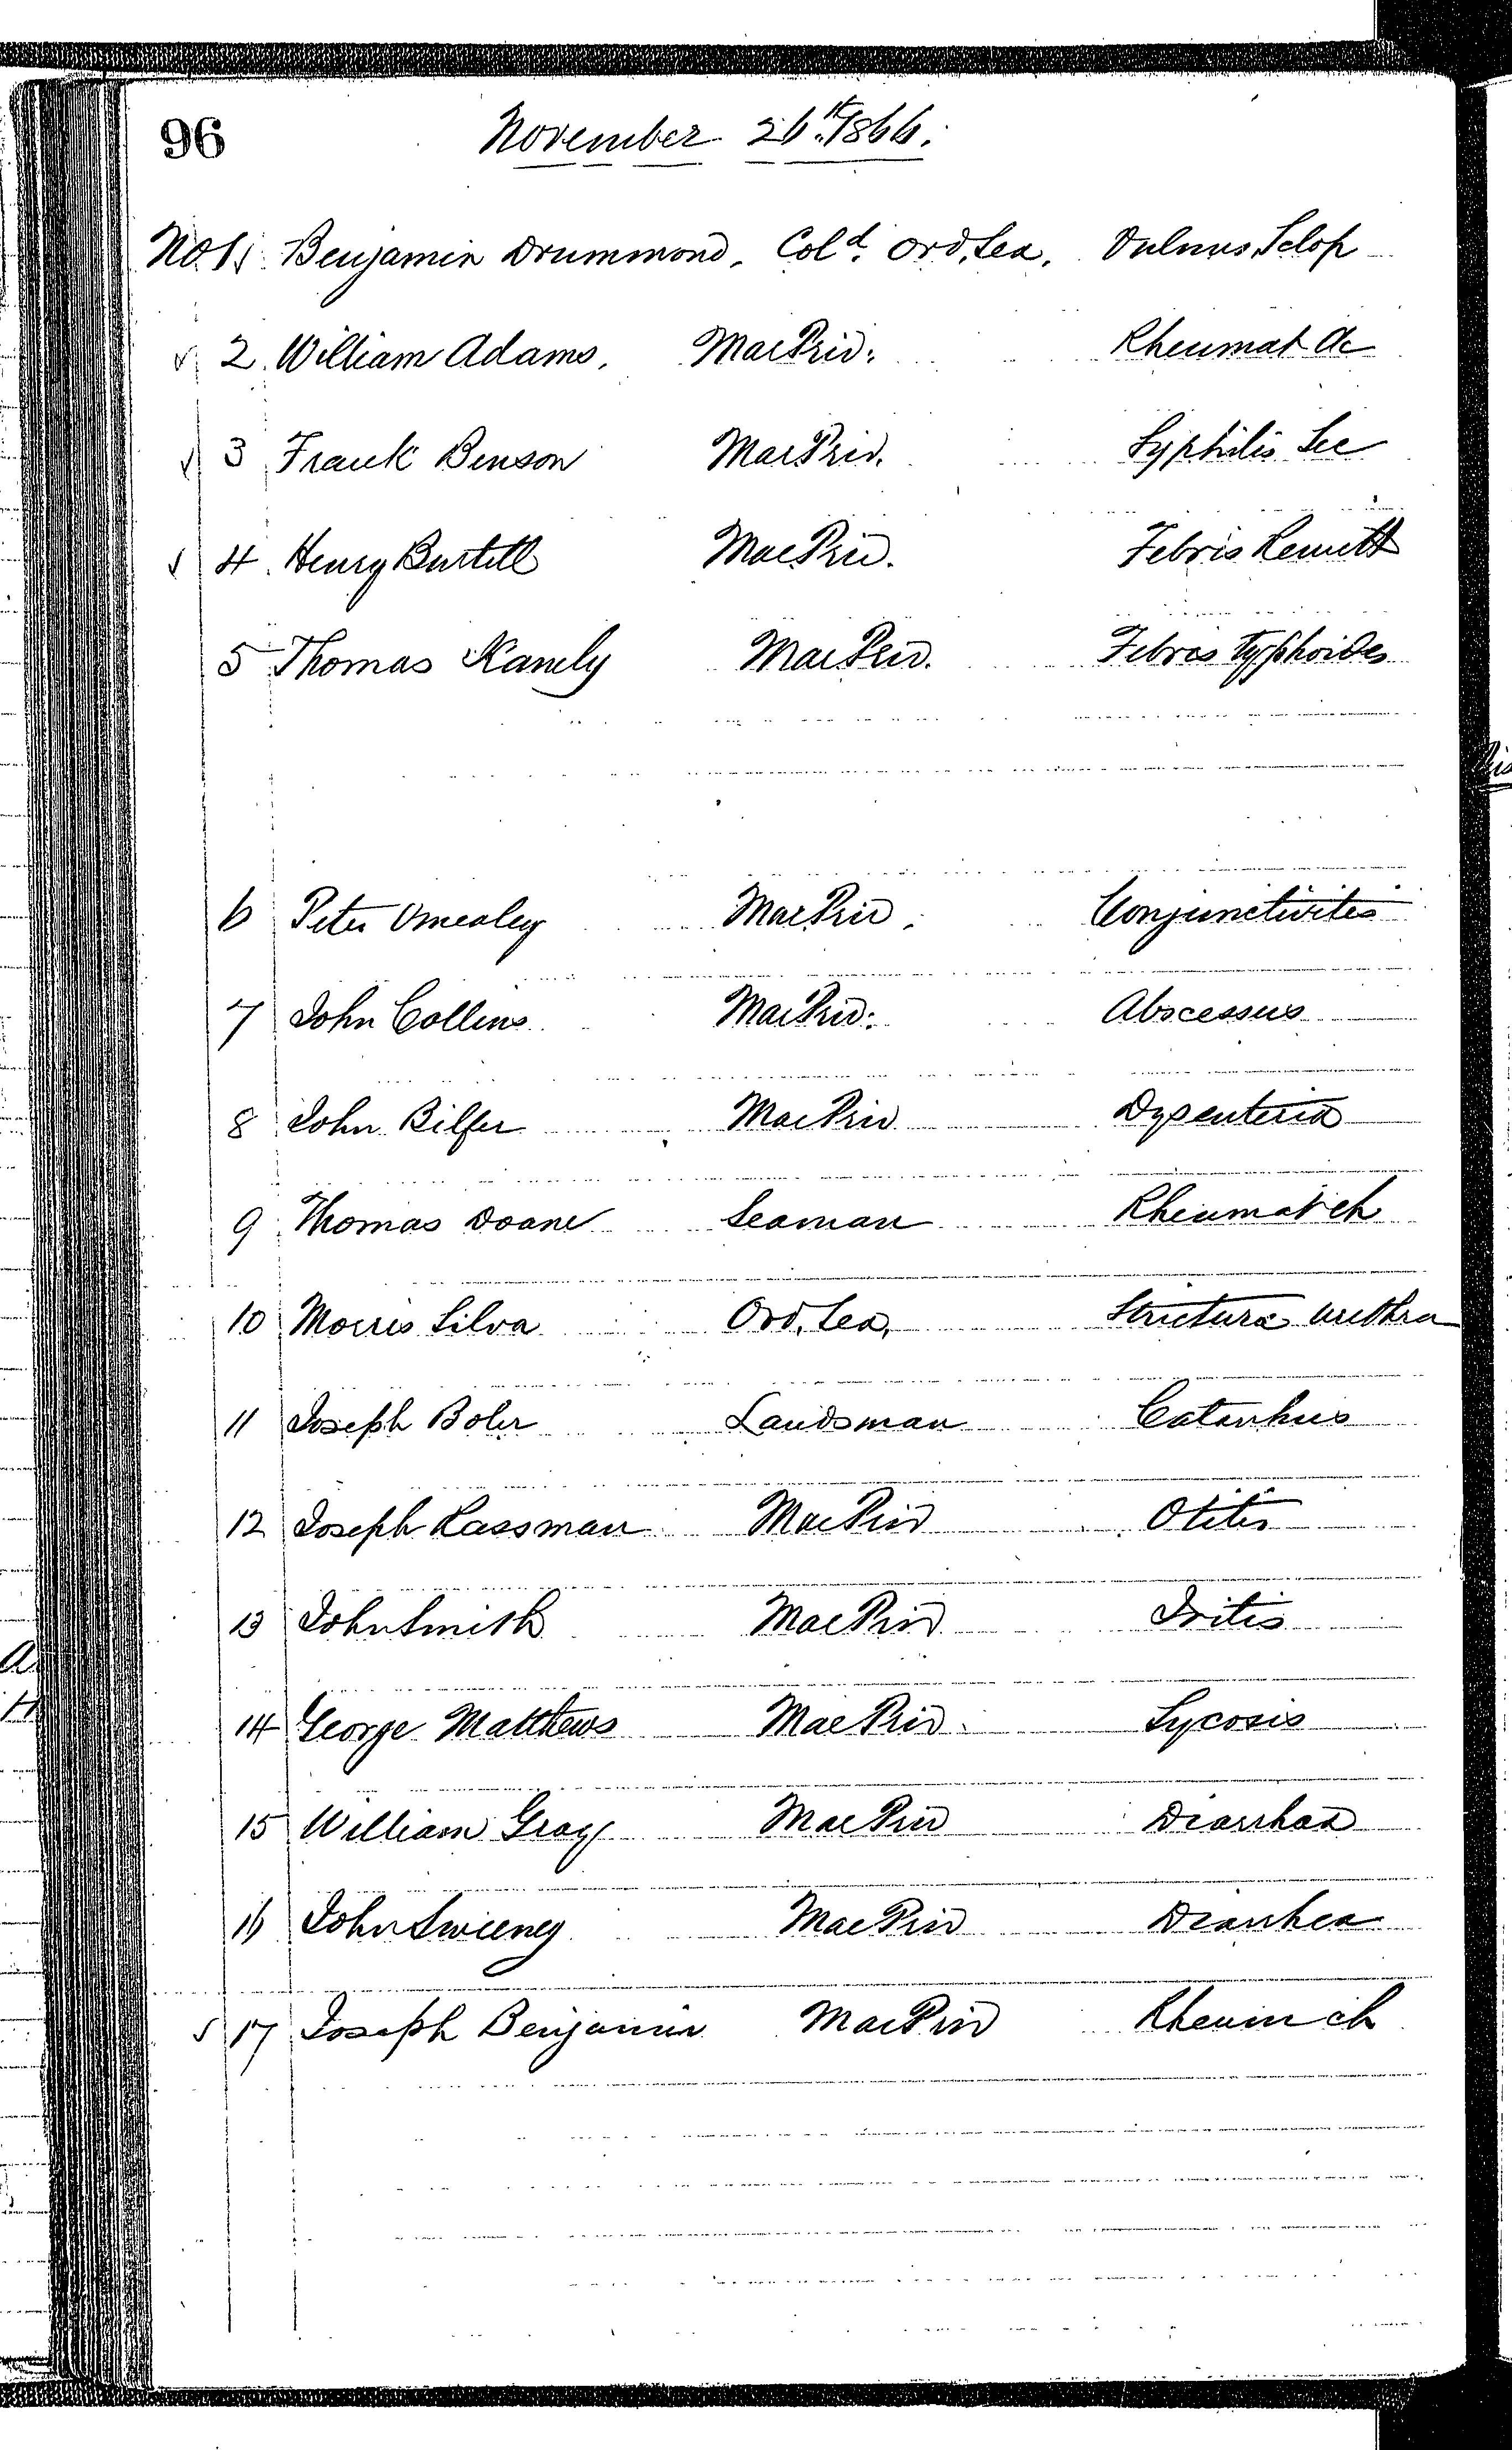 96
November 26th. 1866.
No 1, Benjamin Drummond, Cold. Ord, Sea, Vulnus, Sclop
2. William Adams, Mar Priv: Rheumat Ac
3 Frank Benson Mar Priv. Syphilis Sec
4. Henry Burtell Mar Priv. Febris Remitt
5 Thomas Kanely Mar Priv. Febris typhoides
6 Peter Omealey Mar Priv. Conjunctivitis
7 John Collins Mar Priv: Abscessus
8 John Bilfer Mar Priv Dysenteria
9 Thomas Doane Seaman Rheumat ch
10 Morris Silva Ord, Sea, Strictura urethra
11 Joseph Boler Landsman Catarrhus
12 Joseph Rassman Mar Priv Otitis
13 John Smith Mar Priv Iritis
14 George Matthews Mar Priv. Sycosis
15 William Gray Mar Priv Diarrhaa
16 John Sweeney Mar Priv Diarrhea
17 Joseph Benjamin Mar Priv Rheum ch